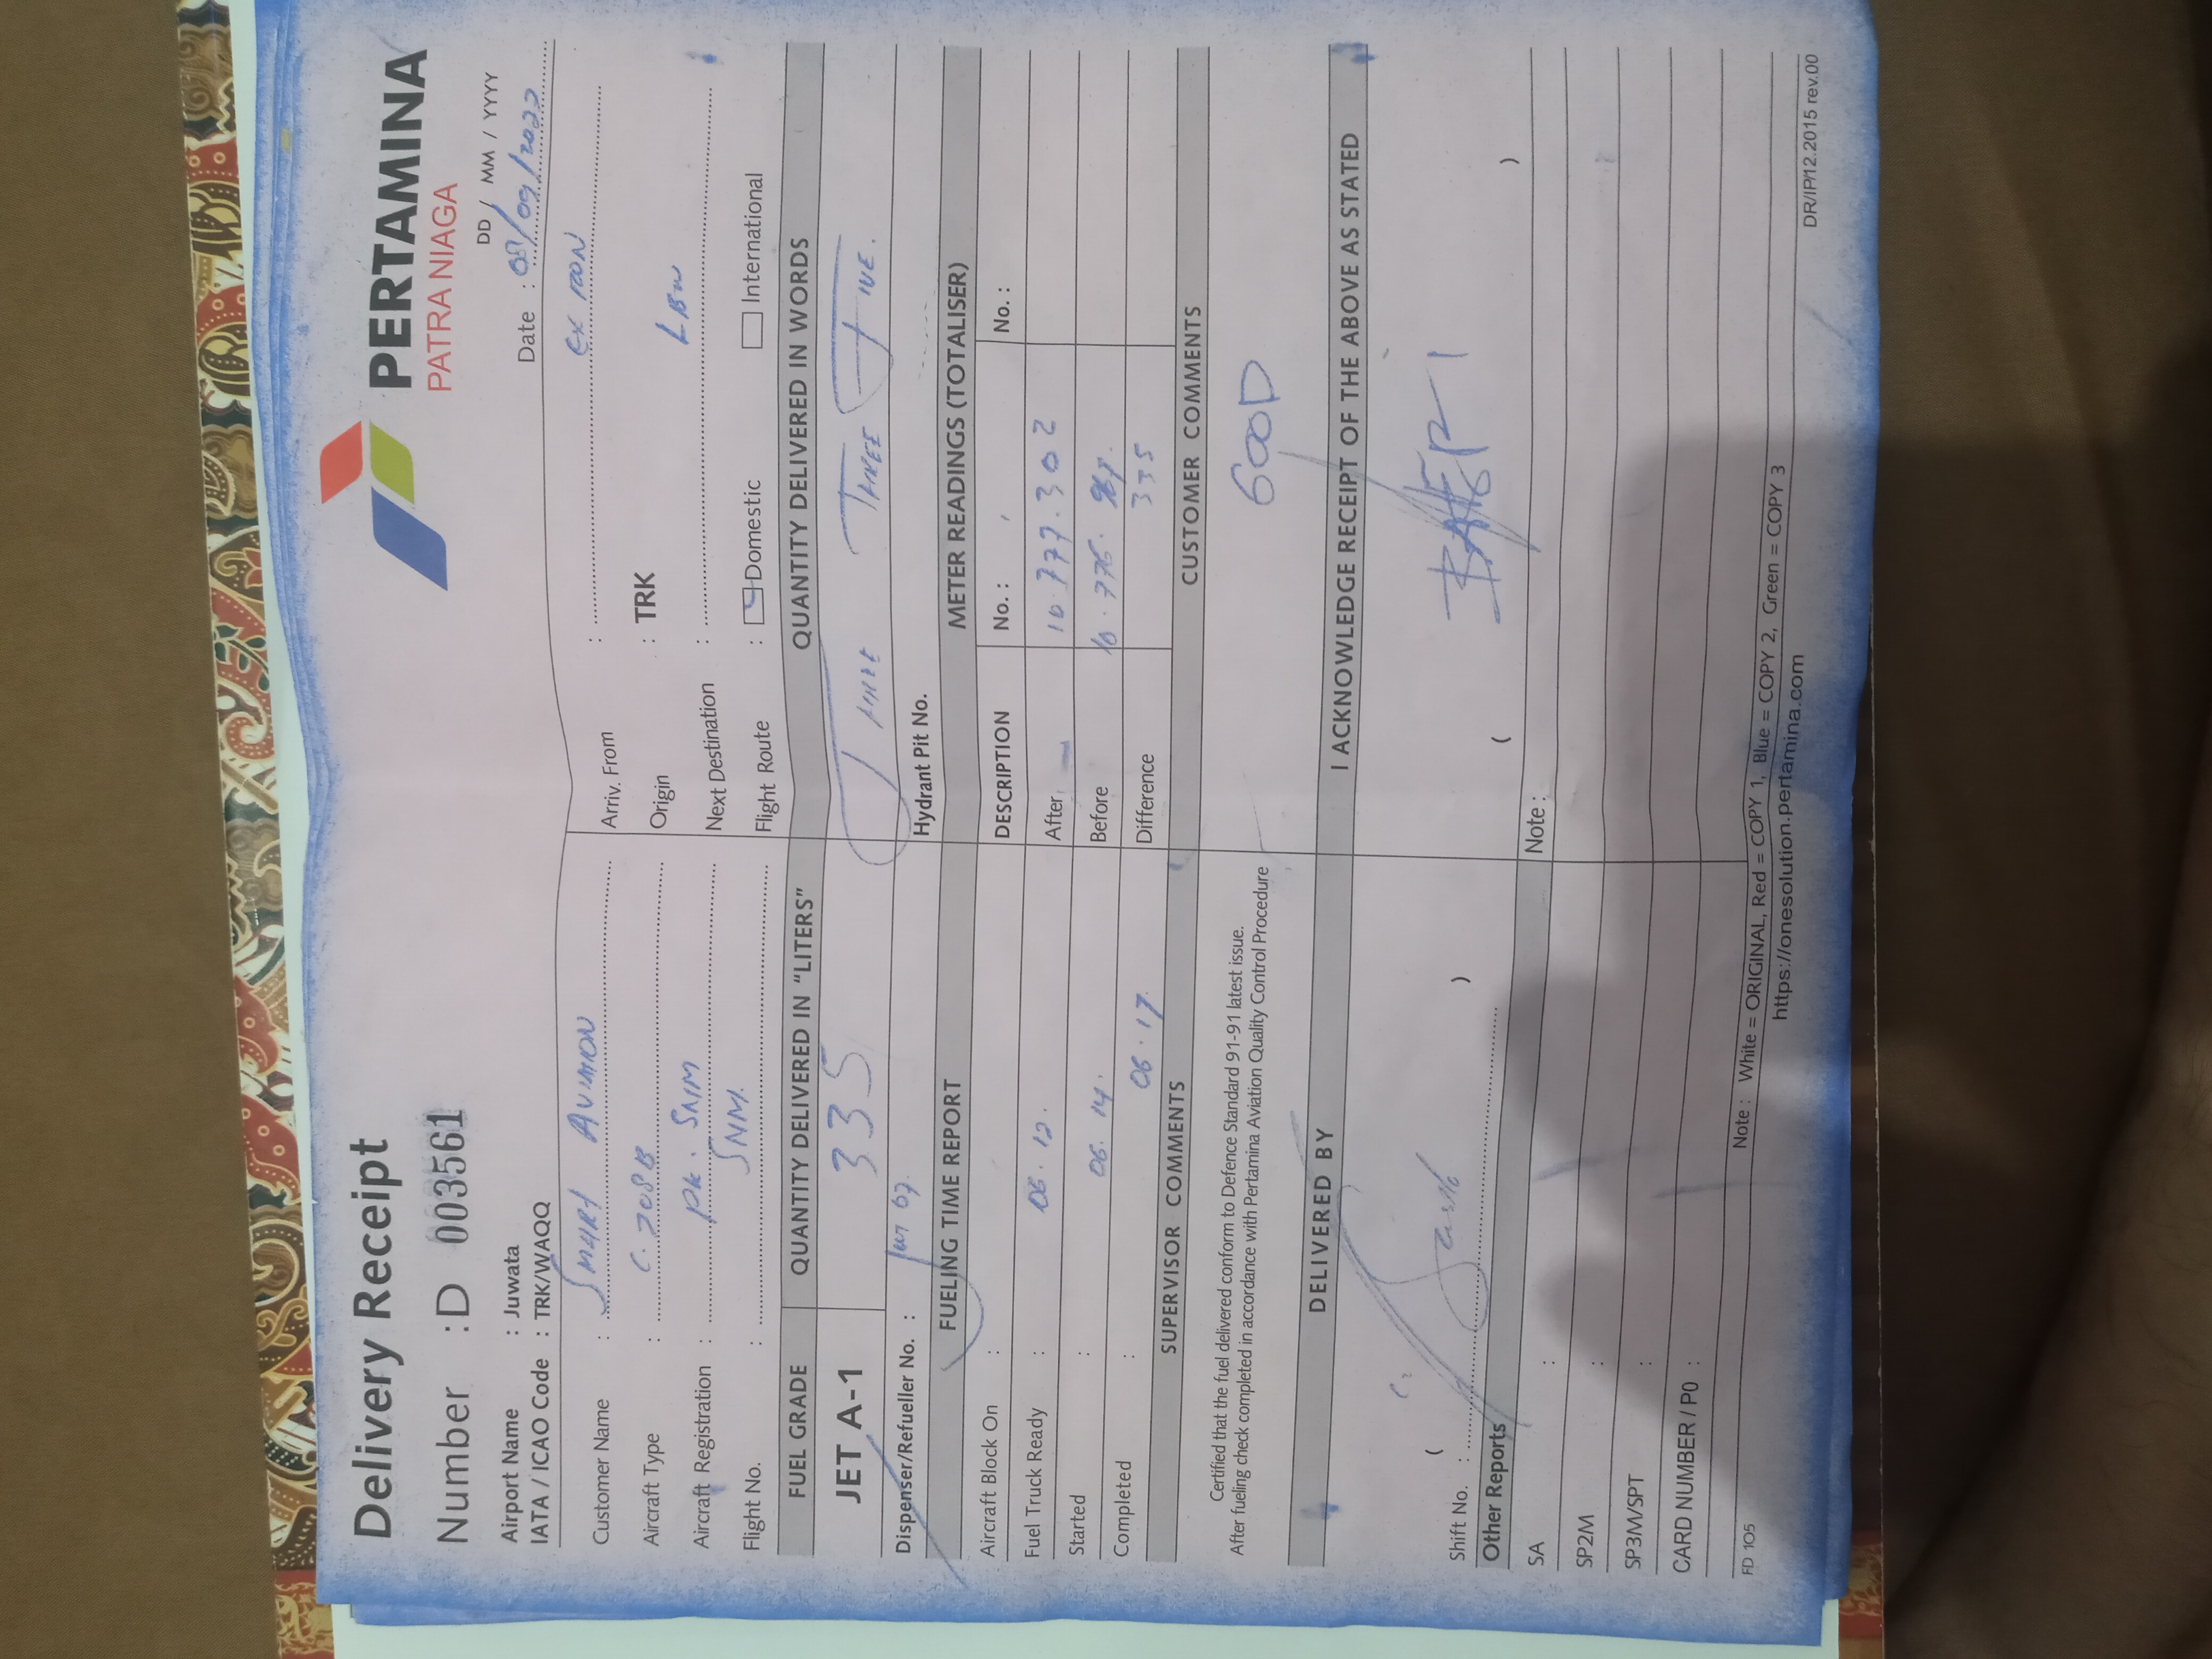 Delivery Receipt
PERTAMINA
PATRA NIAGA
Number : D 003561
DD / MM / YYYY
Airport Name : Juwata
IATA / ICAO Code : TRK/WAQQ
Date : 09/2022
Customer Name : SMART AVIATION
Arriv. From : EX RON
Aircraft Type : C. 208B
Origin : TRK
Aircraft Registration : PK. SNM
SNM.
Next Destination : LBW
Flight No. :
Flight Route : Domestic International
FUEL GRADE QUANTITY DELIVERED IN "LITERS" QUANTITY DELIVERED IN WORDS
JET A-1 335 THREE THREE FIVE.
Dispenser/Refueller No. : 07.
Hydrant Pit No.
FUELING TIME REPORT METER READINGS (TOTALISER)
Aircraft Block On :
DESCRIPTION No. : No. :
Fuel Truck Ready : 06. 12.
After 10.777.302
Started : 06. 14.
Before 10.776.967.
Completed : 06.17
Difference 335
SUPERVISOR COMMENTS CUSTOMER COMMENTS
Certified that the fuel delivered conform to Defence Standard 91-91 latest issue.
After fueling check completed in accordance with Pertamina Aviation Quality Control Procedure
GOOD
DELIVERED BY I ACKNOWLEDGE RECEIPT OF THE ABOVE AS STATED
( ) ( )
Shift No. :
Other Reports
Note :
SA :
SP2M :
SP3M/SPT :
CARD NUMBER / PO :
FD 105
Note : White = ORIGINAL, Red = COPY 1, Blue = COPY 2, Green = COPY 3
https://onesolution.pertamina.com
DR/IP/12.2015 rev.00